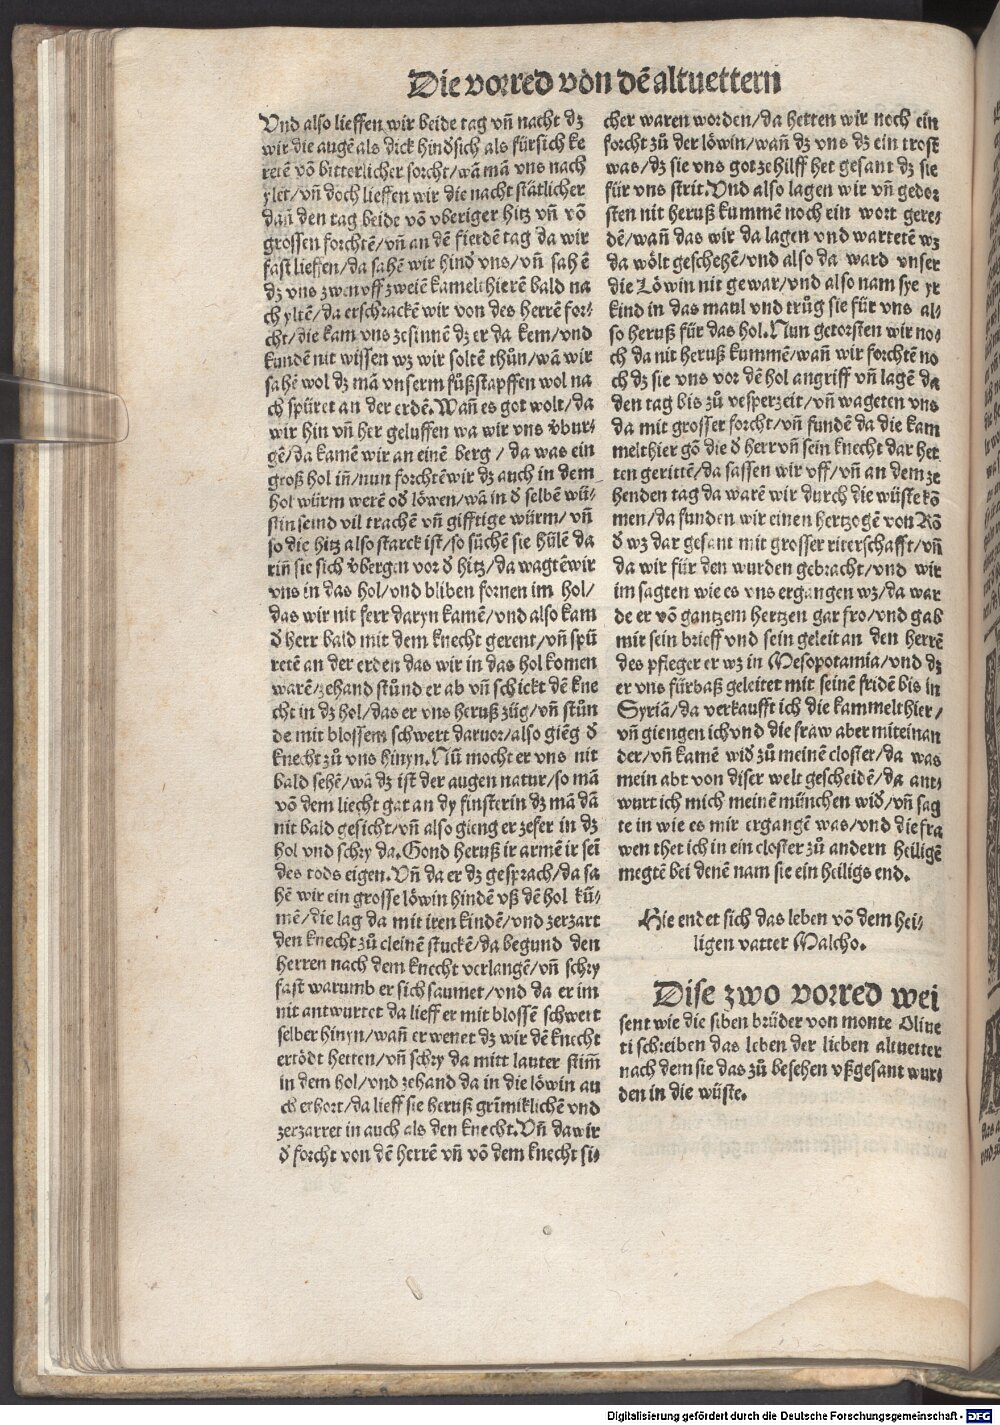 Die vorred von dē altuettern
Vnd also lieffen wir beide tag vn̄ nacht dz
wir die augē als dick hindſich als fürſich ke
retē vō bitterlicher forcht/wā mā vns nach
ylet/vn̄ doch lieffen wir die nacht ſtätlicher
dan̄ den tag beide vō vberiger hitz vn̄ vō
groſſen forchtē/vn̄ an dē fierdē tag da wir
faſt lieffen/da ſahē wir hind vns/vn̄ ſah ē
dz vns zwen vff zweiē kamelthierē bald na
ch yltē/da erſchrackē wir von des herrē for⸗
cht/die kam vns zeſinnē dz er da kem/vnd
kundē nit wiſſen wz wir ſoltē thůn/wā wir
ſahē wol dz mā vnſerm fůßſtapffen wol na
ch ſpüret an der erdē. Wan̄ es got wolt/da
wir hin vn̄ her geluffen wa wir vns ṽbur⸗
gē/da kamē wir an einē berg / da was ein
groß hol in̄/nun forchtē wir dz auch in dem
hol würm werē od löwen/wā in đ ſelbē wü⸗
ſtin ſeind vil trachē vn̄ gifftige würm/vn̄
ſo die hitz alſo ſtarck iſt/ſo ſůchē ſie hülē da
rin̄ ſie ſich ṽbergen vor đ hitz/da wagtē wir
vns in das hol/vnd bliben fornen im hol/
das wir nit ferr daryn kamē/vnd alſo kam
đ herr bald mit dem knecht gerent/vn̄ ſpů
retē an der erden das wir in das hol komen
warē/zehand ſtůnd er ab vn̄ ſchickt dē kne
cht in dz hol/das er vns heruß züg/vn̄ ſtůn
de mit bloſſem ſchwert daruor/alſo giēg đ
knecht zů vns hinyn. Nū mocht er vns nit
bald ſehē/wā dz iſt der augen natur/ſo mā
vō dem liecht gat an dy finſterin dz mā dā
nit bald geſicht/vn̄ alſo gieng er zefer in dz
hol vnd ſchry da. Gond heruß ir armē ir ſei
des tods eigen. Vn̄ da er dz geſprach/da ſa
hē wir ein groſſe löwin hindē vß dē hol kū⸗
mē/die lag da mit iren kindē/vnd zerzart
den knecht zů cleinē ſtuckē/da begund den
herren nach dem knecht verlangē/vn̄ ſchry
faſt warumb er ſich ſaumet/vnd da er im
nit antwurtet da lieff er mit bloſſē ſchwert
ſelber hinyn/wan̄ er wenet dz wir dē knecht
ertödt hetten/vn̄ ſchry da mitt lauter ſtim̄
in dem hol/vnd zehand da in die löwin au
ch erhort/da lieff ſie heruß grimiklichē vnd
zerzarret in auch als den knecht. Vn̄ da wir
đ forcht von dē herrē vn̄ vō dem knecht ſi⸗
cher waren worden/da hetten wir noch ein
forcht zů der löwin/wan̄ dz vns dz ein troſt
was/dz ſie vns got zehilff het geſant dz ſie
für vns ſtrit. Vnd alſo lagen wir vn̄ gedor
ſten nit heruß kummē noch ein wort gere⸗
dē/wan̄ das wir da lagen vnd wartetē wz
da wölt geſchehē/vnd alſo da ward vnſer
die Löwin nit gewar/vnd alſo nam ſye yr
kind in das maul vnd trůg ſie für vns al⸗
ſo heruß für das hol. Nun getorſten wir no⸗
ch da nit heruß kummē/wan̄ wir forchtē no
ch dz ſie vns vor dē hol angriff vn̄ lagē da
den tag bis zů veſperzeit/vn̄ wageten vns
da mit groſſer forcht/vn̄ fundē da die kam
melthier gō die đ herr vn̄ ſein knecht dar het
ten gerittē/da ſaſſen wir vff/vn̄ an dem ze
henden tag da warē wir durch die wüſte kō
men/da funden wir einen hertzogē von Rō
đ wz dar geſant mit groſſer riterſchafft/vn̄
da wir für den wurden gebracht/vnd wir
im ſagten wie es vns ergangen wz/da war
de er vō gantzem hertzen gar fro/vnd gab
mir ſein brieff vnd ſein geleit an den herrē
des pfleger er wz in Meſopotamia/vnd dz
er vns fürbaß geleitet mit ſeinē fridē bis in
Syriā/da verkaufft ich die kammelthier/
vn̄ giengen ich vnd die fraw aber miteinan
der/vn̄ kamē wid zů meinē cloſter/da was
mein abt von diſer welt geſcheidē/da ant⸗
wurt ich mich meinē münchen wid/vn̄ ſag
te in wie es mir ergangē was/vnd die fra
wen thet ich in ein cloſter zů andern heiligē
megtē bei denē nam ſie ein heiligs end.
Hie endet ſich das leben vō dem hei⸗
ligen vatter Malcho.
Diſe zwo vorred wei
ſent wie die ſiben brüder von monte Oliue
ti ſchreiben das leben der lieben altuetter
nach dem ſie das zů beſehen vßgeſant wur⸗
den in die wüſte.
Digitalisierung gefördert durch die Deutsche Forschungsgemeinschaft - DFG